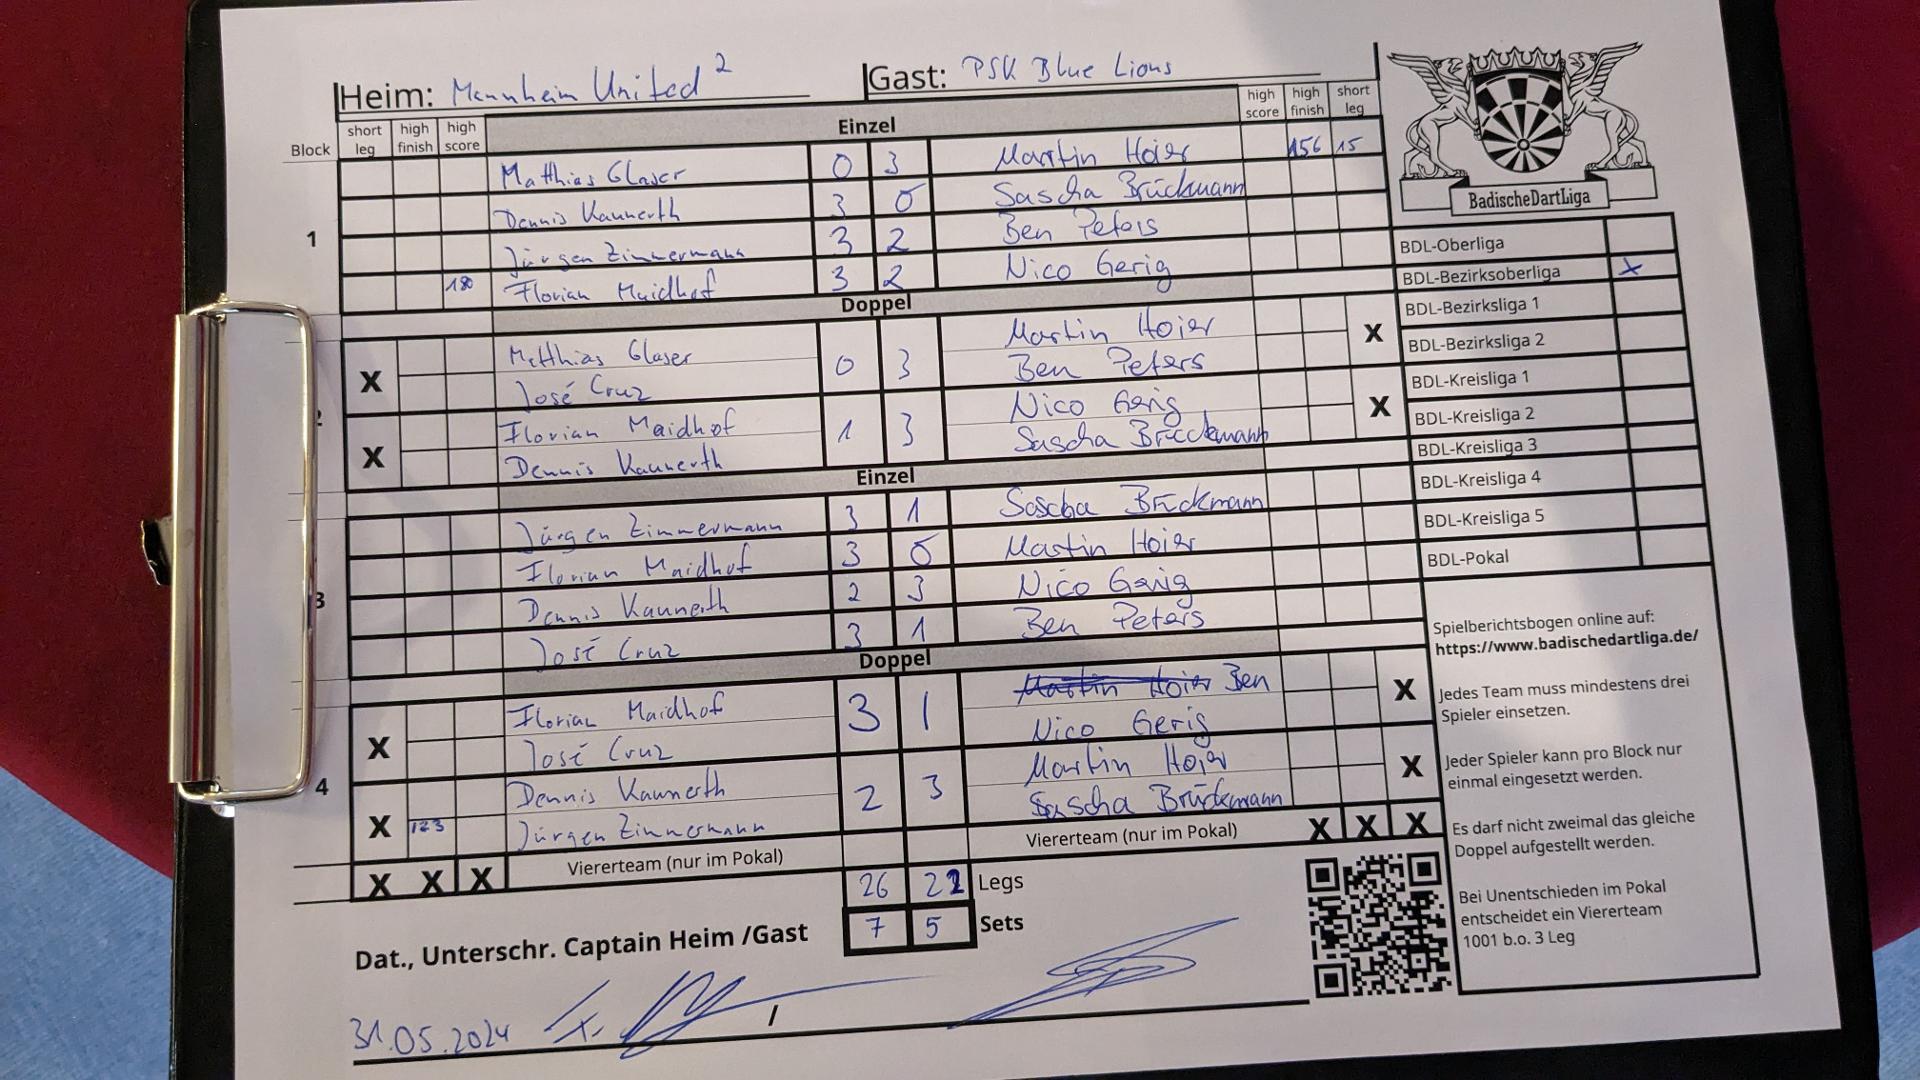 Heim: Mannheim United 2 Gast: PSK Blue Lions
Block short leg high finish high score Einzel high score high finish short leg
1
Matthias Glaser 0 3 Martin Hoier 156 15
Dennis Kaunerth 3 0 Sascha Brückmann
Jürgen Zimmermann 3 2 Ben Peters
180 Florian Maidhof 3 2 Nico Gerig
Doppel
Matthias Glaser 0 3 Martin Hoier
X José Cruz Ben Peters X
2
Florian Maidhof 1 3 Nico Gerig
X Dennis Kaunerth Sascha Brückmann X
Einzel
3
Jürgen Zimmermann 3 1 Sascha Brückmann
Florian Maidhof 3 0 Martin Hoier
Dennis Kaunerth 2 3 Nico Gerig
José Cruz 3 1 Ben Peters
Doppel
4
Florian Maidhof 3 1 Martin Hoier Ben
X José Cruz Nico Gerig X
Dennis Kaunerth 2 3 Martin Hoier
X 123 Jürgen Zimmermann Sascha Brückmann X
X X X Viererteam (nur im Pokal) Viererteam (nur im Pokal) X X X
26 22 Legs
7 5 Sets
Dat., Unterschr. Captain Heim /Gast
31.05.2024 /
BadischeDartLiga
BDL-Oberliga
BDL-Bezirksoberliga x
BDL-Bezirksliga 1
BDL-Bezirksliga 2
BDL-Kreisliga 1
BDL-Kreisliga 2
BDL-Kreisliga 3
BDL-Kreisliga 4
BDL-Kreisliga 5
BDL-Pokal
Spielberichtsbogen online auf:
https://www.badischedartliga.de/
Jedes Team muss mindestens drei
Spieler einsetzen.
Jeder Spieler kann pro Block nur
einmal eingesetzt werden.
Es darf nicht zweimal das gleiche
Doppel aufgestellt werden.
Bei Unentschieden im Pokal
entscheidet ein Viererteam
1001 b.o. 3 Leg